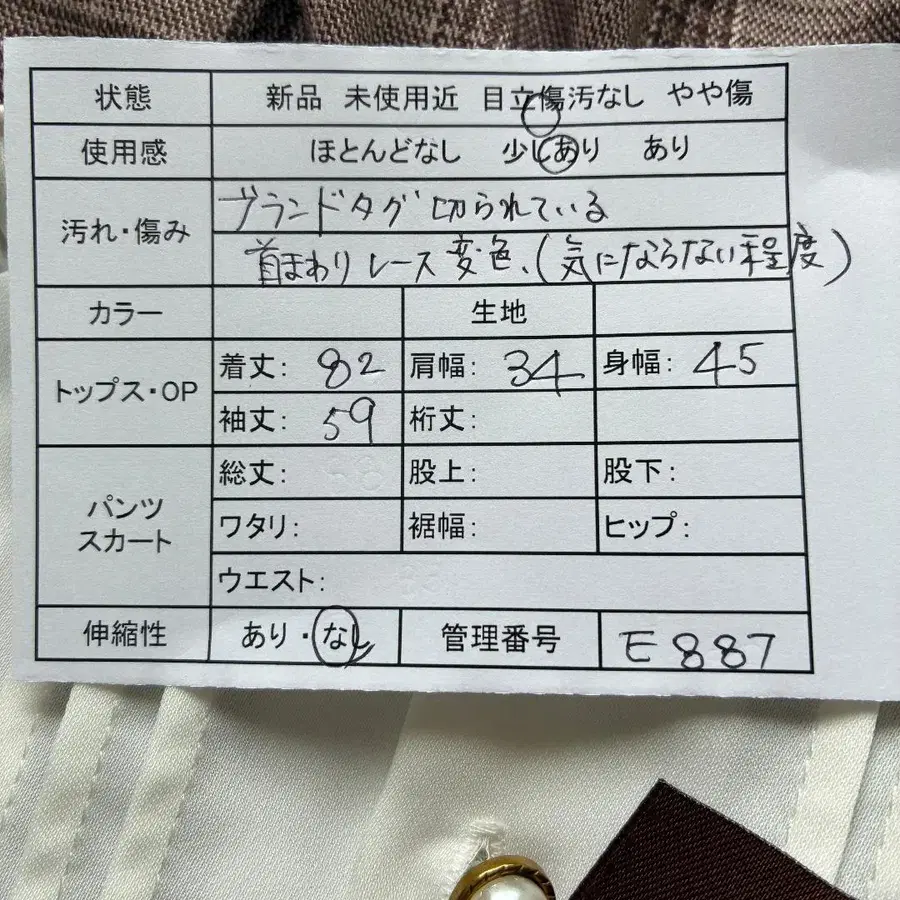 状態 新品 未使用近 目立傷汚なし やや傷
使用感 ほとんどなし 少しあり あり
汚れ・傷み ブランドタグ切られている
首まわりレース変色、(気にならない程度)
カラー 生地
トップス・OP 着丈: 82 肩幅: 34 身幅: 45
袖丈: 59 裄丈:
パンツ スカート 総丈: 股上: 股下:
ワタリ: 裾幅: ヒップ:
ウエスト:
伸縮性 あり・なし 管理番号 E887